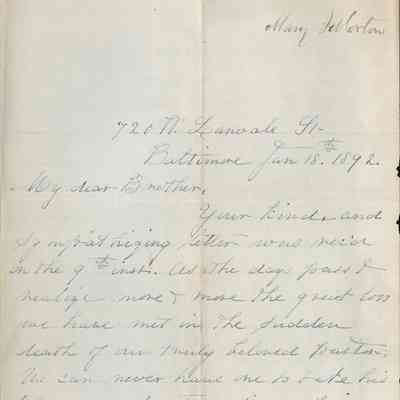 Mary Morton
720 W. Lanvale St-
Baltimore Jan 18th 1892.
My dear Brother,
Your kind, and
sympathizing letter was rec'd
on the 9th inst. As the days pass I
realize more & more the great loss
we have met in the sudden
death of our truly beloved pastor.
We can never have one to take his